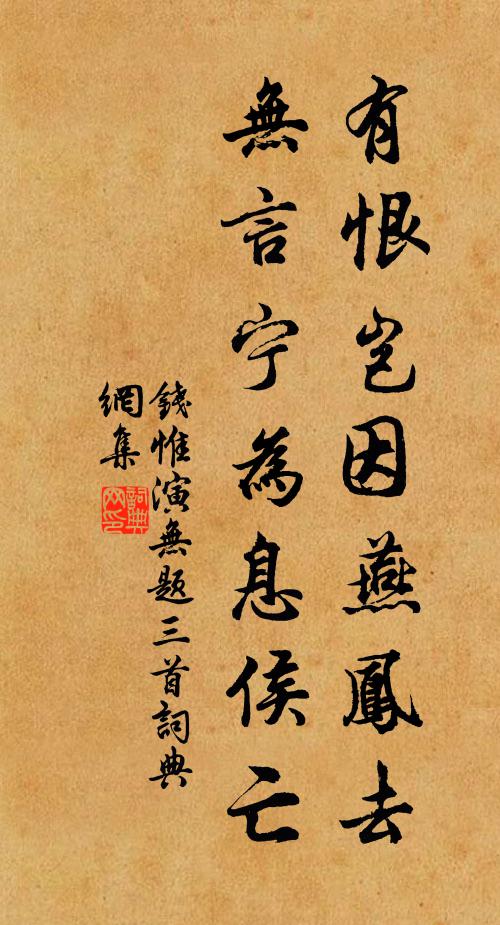 有恨岂因燕鳳去
無言宁為息侯亡
錢惟演無题三首詞典
網集
詞典
网印